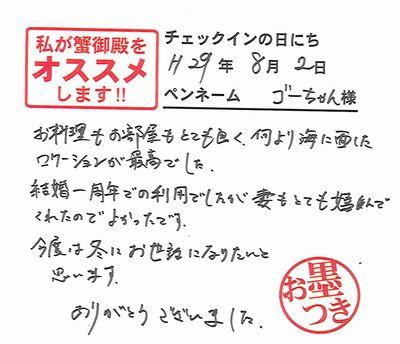 私が蟹御殿を
オススメ
します!!
チェックインの日にち
H29年 8月 2日
ペンネーム ゴーちゃん様
お料理もお部屋もとても良く、何より海に面した
ロケーションが最高でした。
結婚一周年での利用でしたが妻もとても喜んで
くれたのでよかったです。
今度は冬にお世話になりたいと
思います。
ありがとうございました。
お墨つき